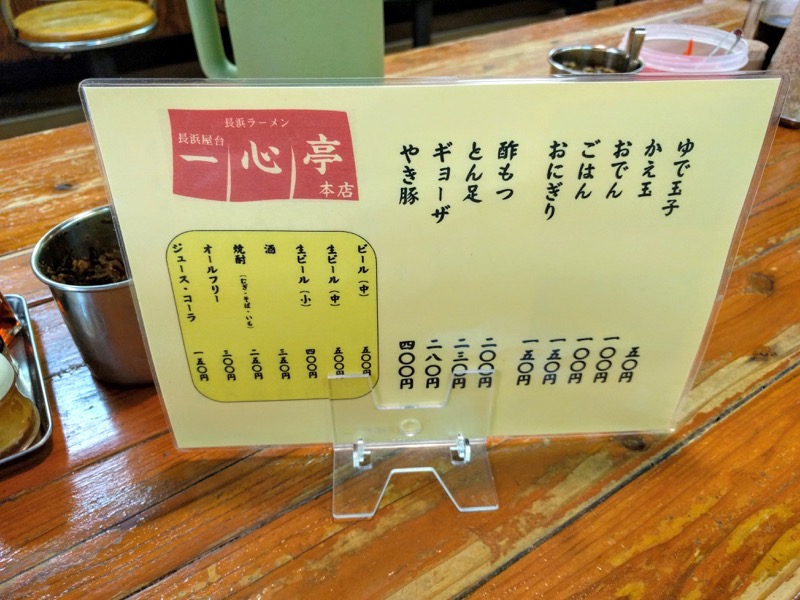 長浜ラーメン
長浜屋台
一心亭
本店
ゆで玉子 五〇円
かえ玉 一〇〇円
おでん 一〇〇円
ごはん 一五〇円
おにぎり 一五〇円
酢もつ 二〇〇円
とん足 二三〇円
ギョーザ 二八〇円
やき豚 四〇〇円
ビール（中） 五〇〇円
生ビール（中） 五〇〇円
生ビール（小） 四〇〇円
酒 三五〇円
焼酎（むぎ・そば・いも） 二五〇円
オールフリー 三〇〇円
ジュース・コーラ 一五〇円